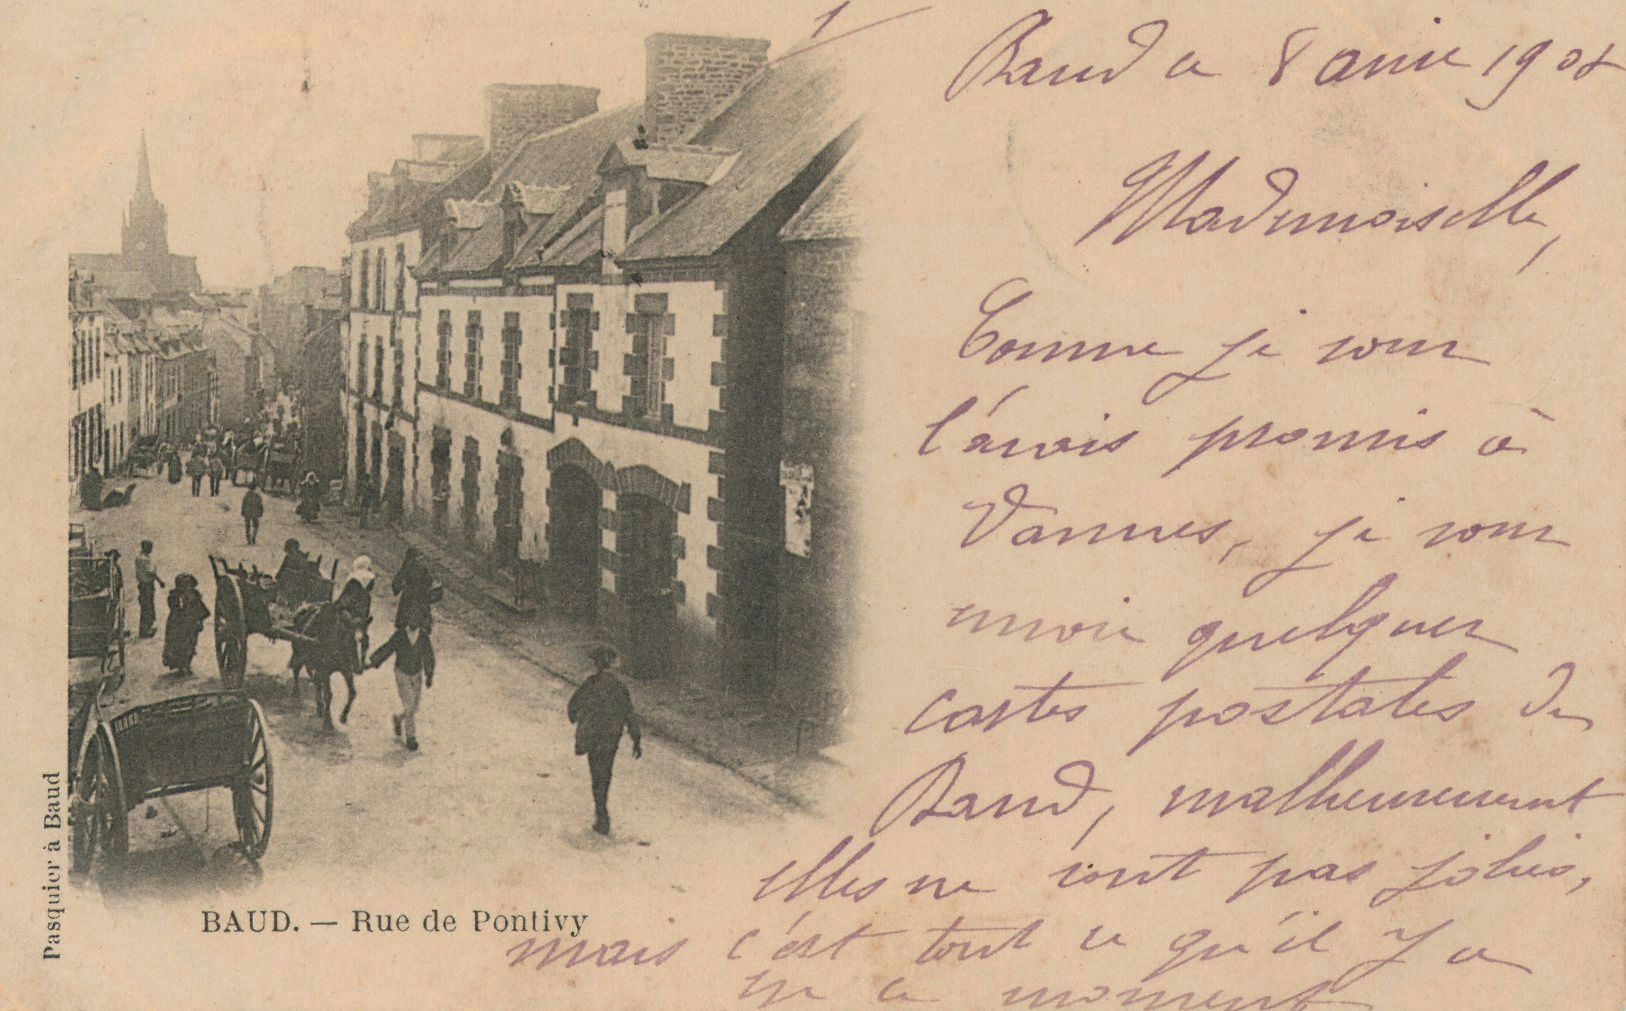 Baud ce 8 avril 190
Mademoiselle,
Comme je vous
l'avais promis à
Vannes, je vous
envoie quelques
cartes postales de
Baud, malheureusement
elles ne sont pas jolies,
mais c'est tout ce qu'il y a
en ce moment
BAUD. — Rue de Pontivy
Pasquier à Baud